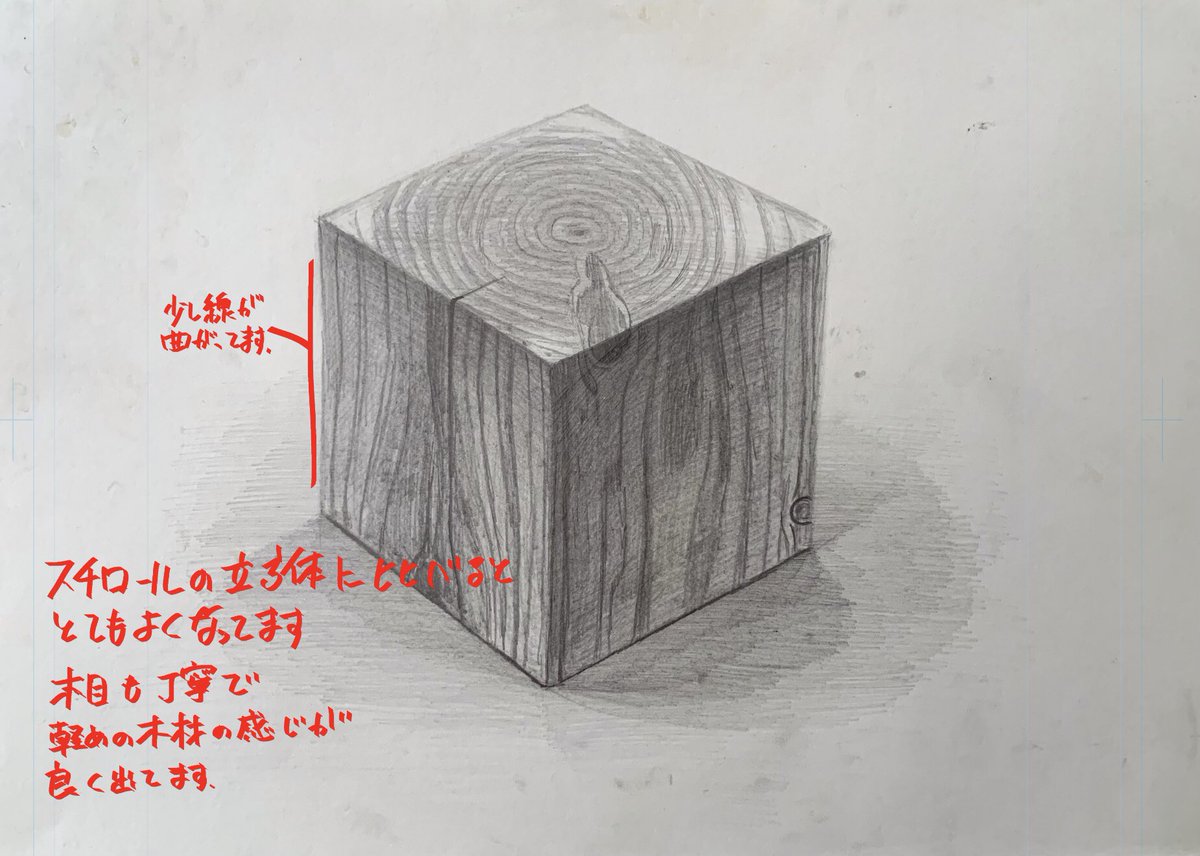 少し線が
曲がってます。
スチロールの立方体にくらべると
とてもよくなってます
木目も丁寧で
軽めの木材の感じが
良く出てます。